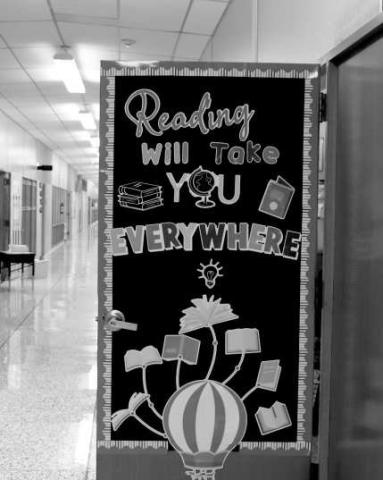 Reading
Will Take
YOU
EVERYWHERE